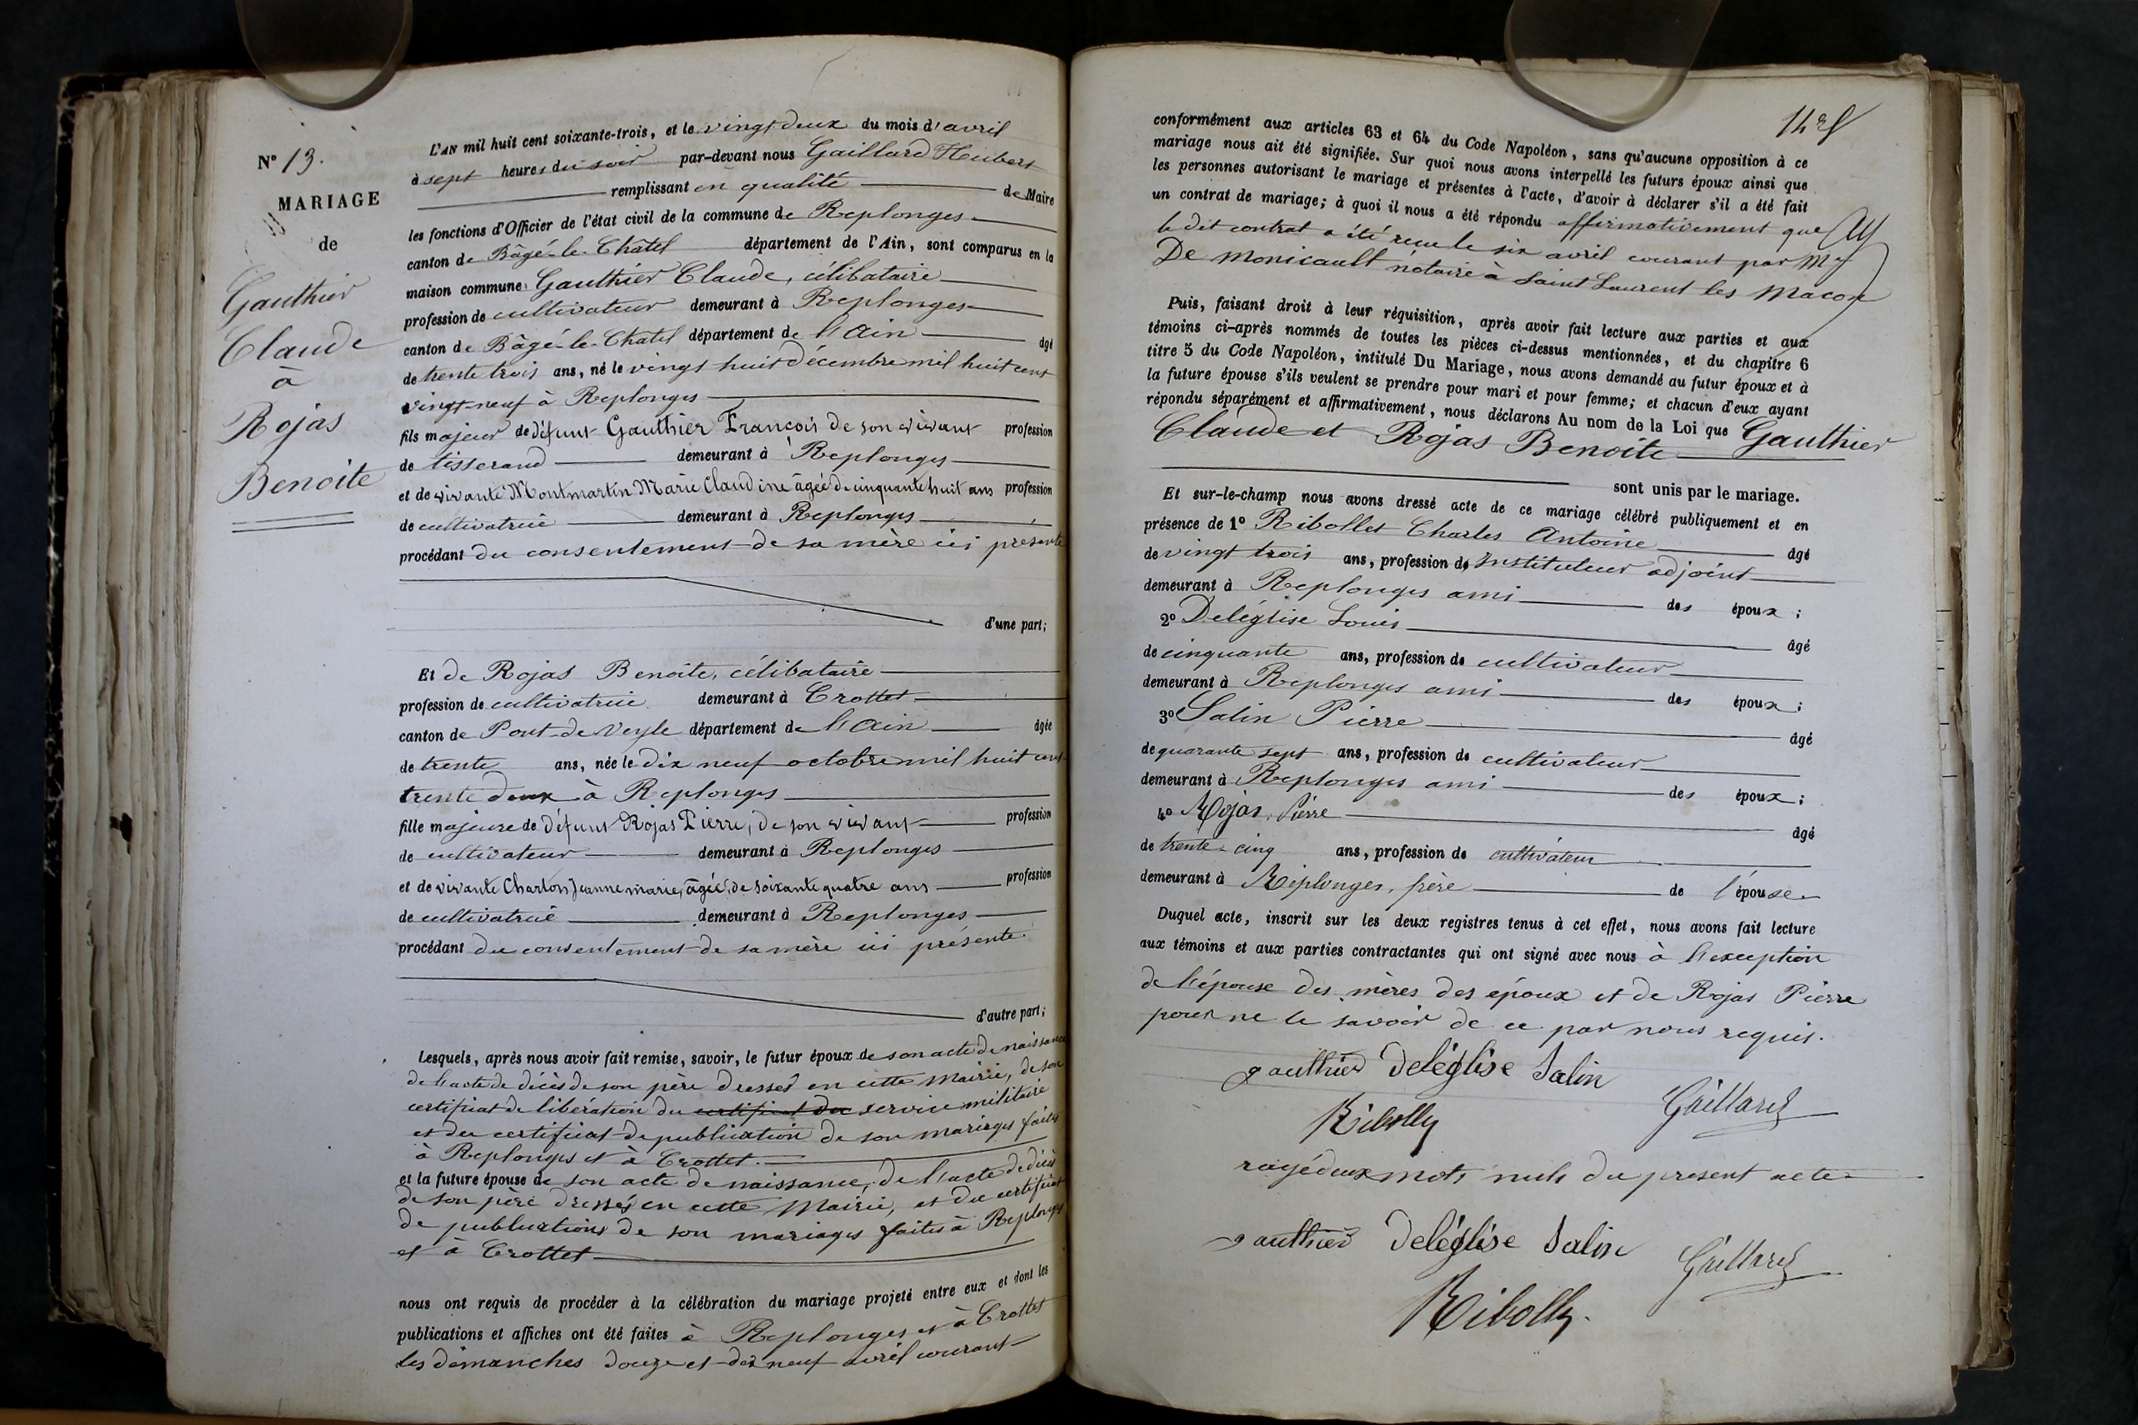 N° 13.
MARIAGE
de
Gauthier
Claude
à
Rojas
Benoite
L'AN mil huit cent soixante-trois, et le vingt deux du mois d'avril
à sept heures du soir par-devant nous Gaillard Hubert
remplissant en qualité de Maire
les fonctions d'Officier de l'état civil de la commune de Replonges
canton de Bâgé-le-Châtel département de l'Ain, sont comparus en la
maison commune Gauthier Claude, célibataire
profession de cultivateur demeurant à Replonges
canton de Bâgé-le-Chatel département de l'Ain âgé
de trente trois ans, né le vingt huit décembre mil huit cent
vingt-neuf à Replonges
fils majeur de défunt Gauthier François de son vivant profession
de tisserand demeurant à Replonges
et de vivante Montmartin Marie Claudine âgée de cinquante huit ans profession
de cultivatrice demeurant à Replonges
procédant du consentement de sa mère ici présente
d'une part;
Et de Rojas Benoite, célibataire
profession de cultivatrice demeurant à Crottet
canton de Pont-de-Veyle département de l'Ain âgée
de trente ans, née le dix neuf octobre mil huit cent
trente deux à Replonges
fille majeure de défunt Rojas Pierre, de son vivant profession
de cultivateur demeurant à Replonges
et de vivante Charton Jeanne marie, âgée, de soixante quatre ans profession
de cultivatrice demeurant à Replonges
procédant du consentement de sa mère ici présente.
d'autre part;
Lesquels, après nous avoir fait remise, savoir, le futur époux de son acte de naissance
de l'acte de décès de son père dressés en cette Mairie, de son
certificat de libération du certificat du service militaire
et du certificat de publication de son mariages faites
à Replonges et à Crottet.
et la future épouse de son acte de naissance, de l'acte de décès
de son père dressés en cette Mairie, et du certificat
de publications de son mariages faites à Replonges
et à Crottet
nous ont requis de procéder à la célébration du mariage projeté entre eux et dont les
publications et affiches ont été faites à Replonges et à Crottet
les dimanches douze et dix neuf avril courant
conformément aux articles 63 et 64 du Code Napoléon, sans qu'aucune opposition à ce
mariage nous ait été signifiée. Sur quoi nous avons interpellé les futurs époux ainsi que
les personnes autorisant le mariage et présentes à l'acte, d'avoir à déclarer s'il a été fait
un contrat de mariage; à quoi il nous a été répondu affirmativement que
le dit contrat a été reçu le six avril courant par Me
De Monicault notaire à Saint Laurent les Macon
Puis, faisant droit à leur réquisition, après avoir fait lecture aux parties et aux
témoins ci-après nommés de toutes les pièces ci-dessus mentionnées, et du chapitre 6
titre 5 du Code Napoléon, intitulé Du Mariage, nous avons demandé au futur époux et à
la future épouse s'ils veulent se prendre pour mari et pour femme; et chacun d'eux ayant
répondu séparément et affirmativement, nous déclarons Au nom de la Loi que Gauthier
Claude et Rojas Benoite
sont unis par le mariage.
Et sur-le-champ nous avons dressé acte de ce mariage célébré publiquement et en
présence de 1° Ribollet Charles Antoine âgé
de vingt trois ans, profession de Instituteur adjoint
demeurant à Replonges ami des époux;
2° Deléglise Louis âgé
de cinquante ans, profession de cultivateur
demeurant à Replonges ami des époux;
3° Salin Pierre âgé
de quarante sept ans, profession de cultivateur
demeurant à Replonges ami des époux;
4° Rojas, Pierre âgé
de trente-cinq ans, profession de cultivateur
demeurant à Replonges, frère de l'épouse
Duquel acte, inscrit sur les deux registres tenus à cet effet, nous avons fait lecture
aux témoins et aux parties contractantes qui ont signé avec nous à l'exception
de l'épouse des mères des époux et de Rojas Pierre
pour ne le savoir de ce par nous requis.
gauthier Deléglise Salin
Ribolly Gaillard
rayé deux mots nuls du present acte
gauthier Deléglise Salin Gaillard
Ribolly.